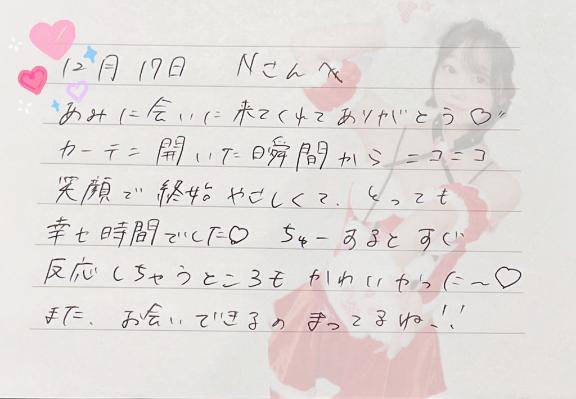 12月17日 Nさんへ
あみに会いに来てくれてありがとう♡
カーテン開いた瞬間からニコニコ
笑顔で終始やさしくて、とっても
幸せ時間でした♡ ちゅーするとすぐ
反応しちゃうところもかわいかった〜♡
また、お会いできるのまってるね!!